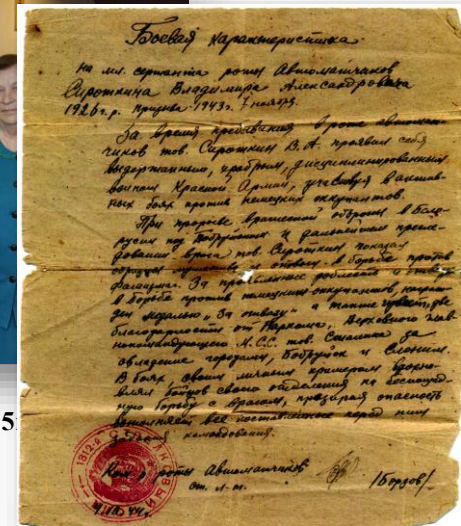 Боевая характеристика
на мл. сержанта роты Автоматчиков
Сироткина Владимира Александровича
1926 г.р. призыва 1943 г. 7 ноября.
За время пребывания в роте автомат-
чиков тов. Сироткин В. А. проявил себя
выдержанным, храбрым, дисциплинированным
воином Красной Армии, участвуя в актив-
ных боях против немецких оккупантов.
При прорыве вражеской обороны в Бело-
руссии под Бобруйском и дальнейшем пресле-
довании врага тов. Сироткин показал
образцы мужества и отваги в борьбе против
фашизма. За проявленное и отвагу
в борьбе против немецких оккупантов, награж-
ден медалью „За отвагу" а также две
благодарности от Наркома, Верховного Глав-
нокомандующего М.С.С. тов. Сталина за
овладение городами, Бобруйск и Слоним.
В боях своим личным примером вдохно-
влял бойцов своего отделения на беспощад-
ную борьбу с врагом, презирая опасность
выполняет все поставленные перед ним
командования.
Ком-р роты Автоматчиков
ст. л-т. /Борзов/
1312-й
5